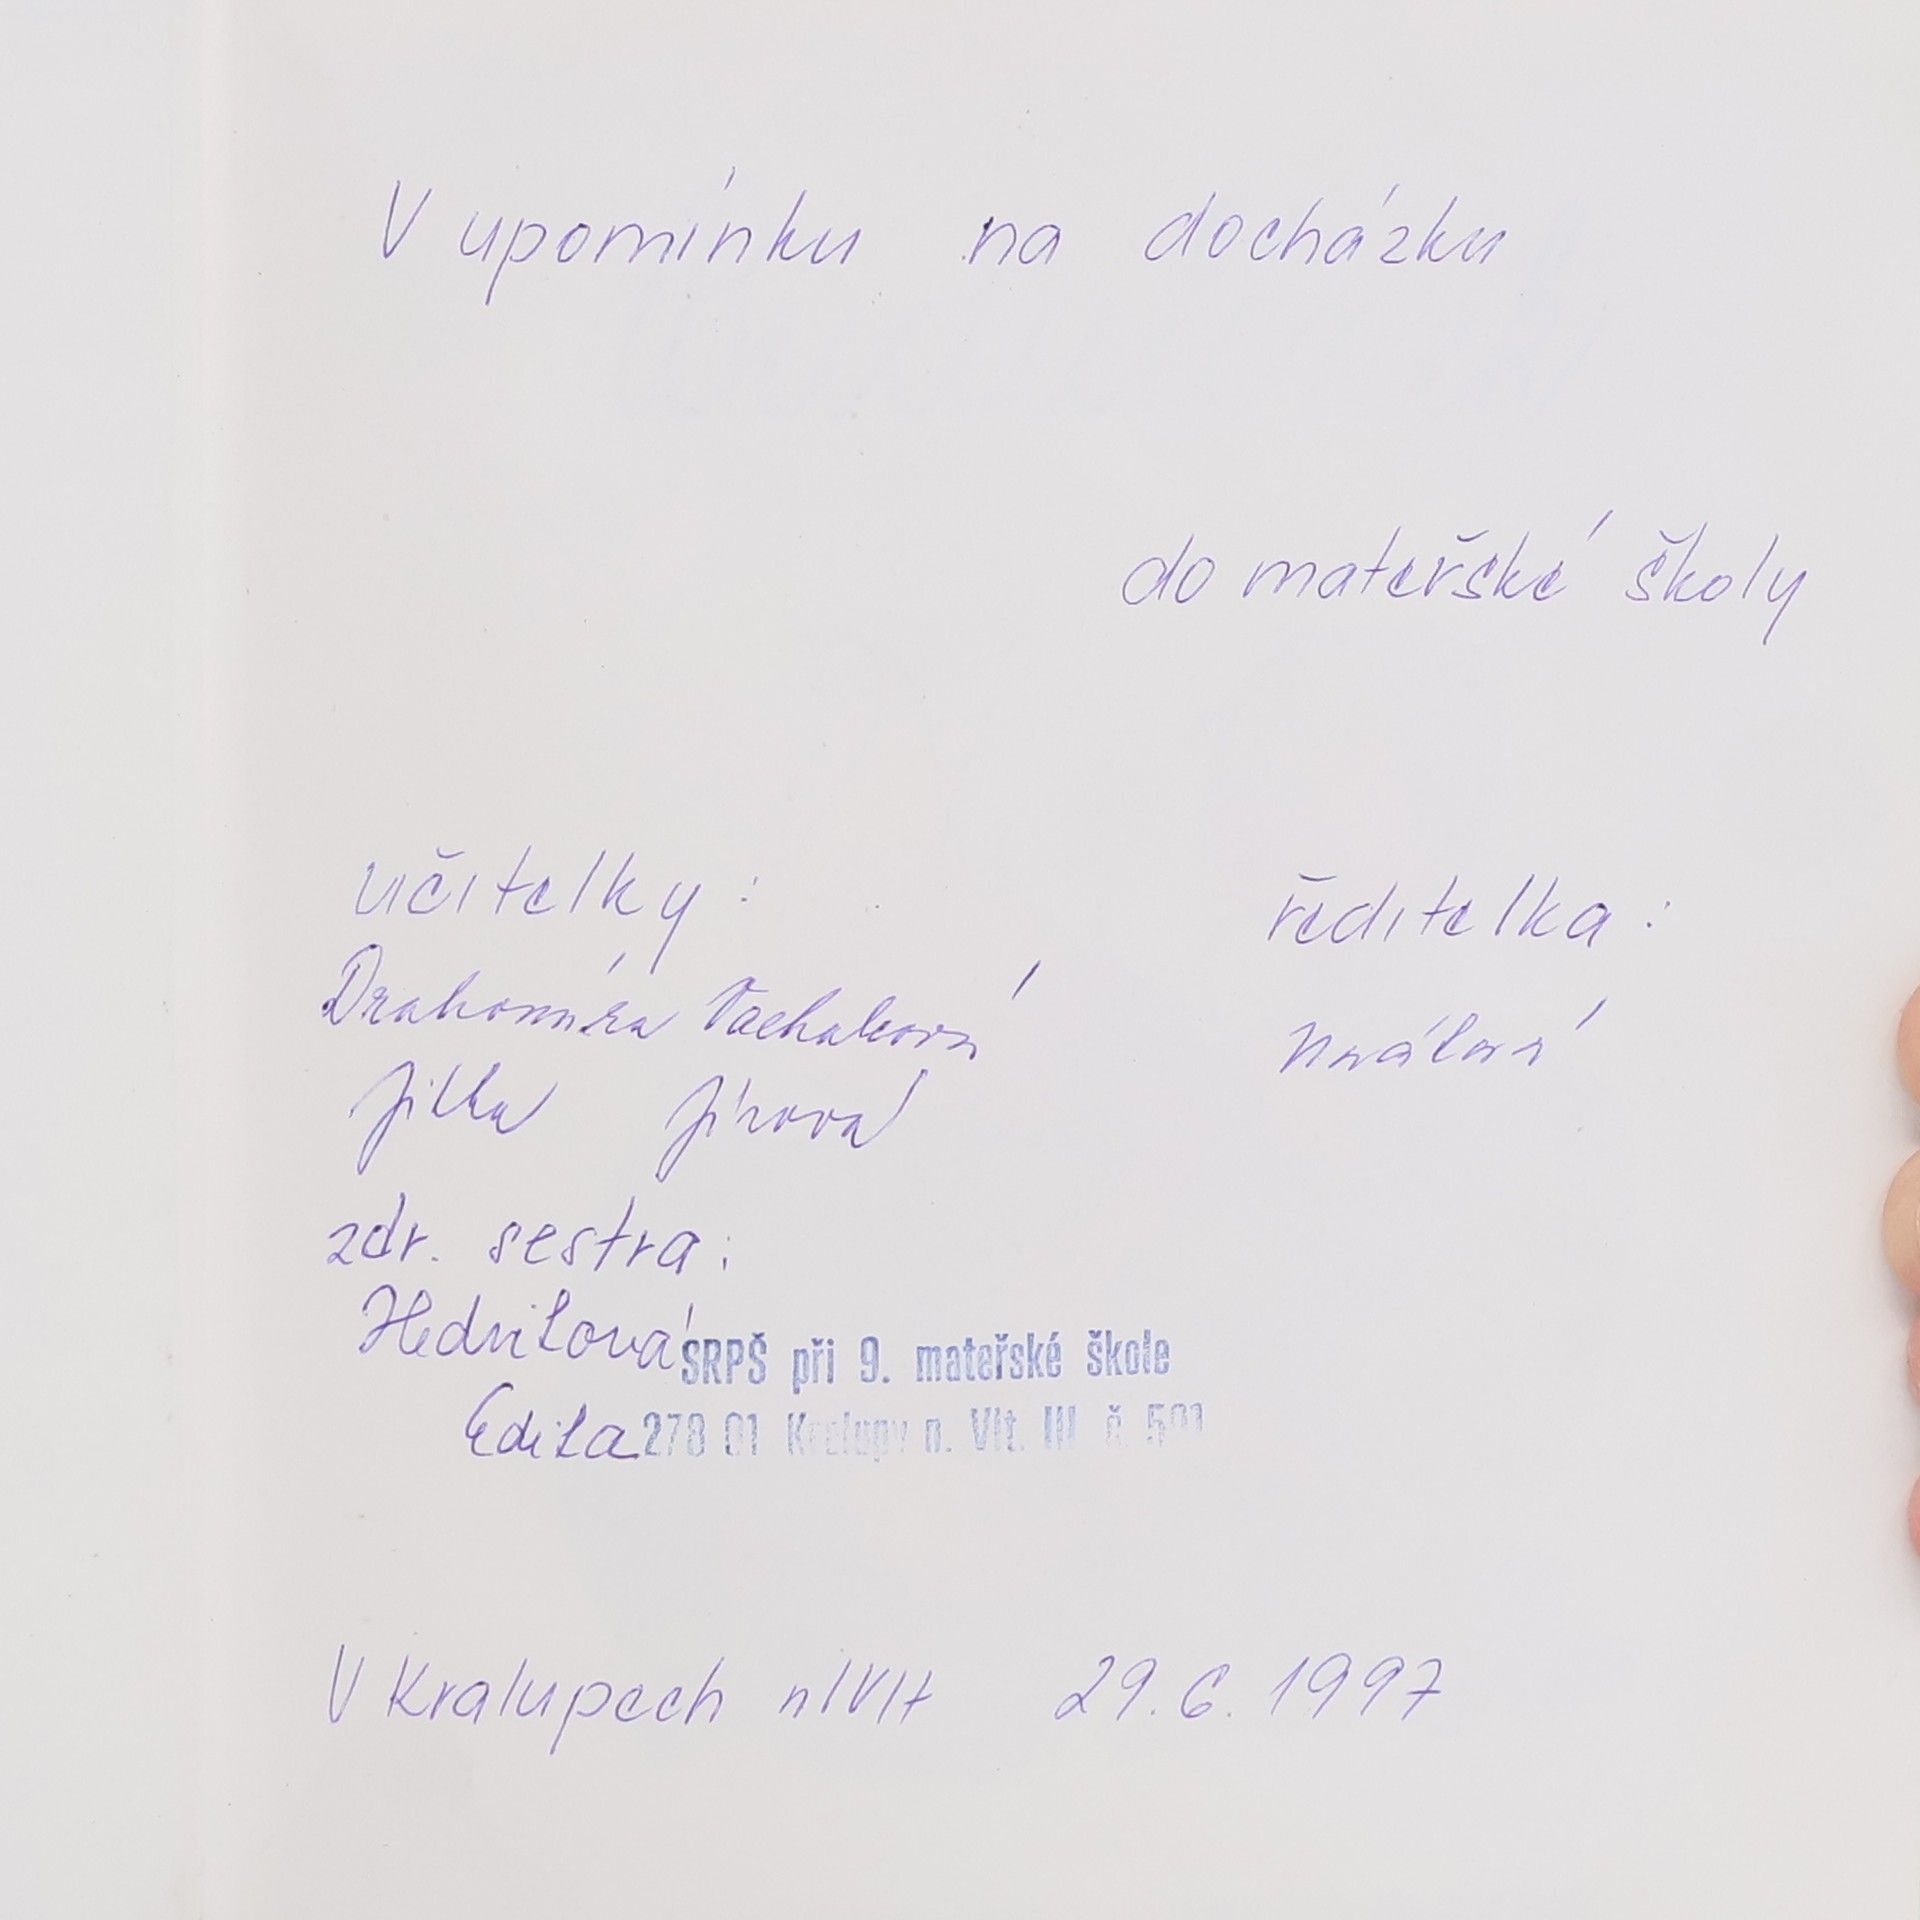 V upomínku na docházku
do mateřské školy
učitelky:
ředitelka:
Drahomíra
Jitka Jírová
zdr. sestra:
Hedvitová
Edita
SRPŠ při 9. mateřské škole
278 01 Kralupy n. Vlt. III č.
V Kralupech n/Vlt 29. 6. 1997